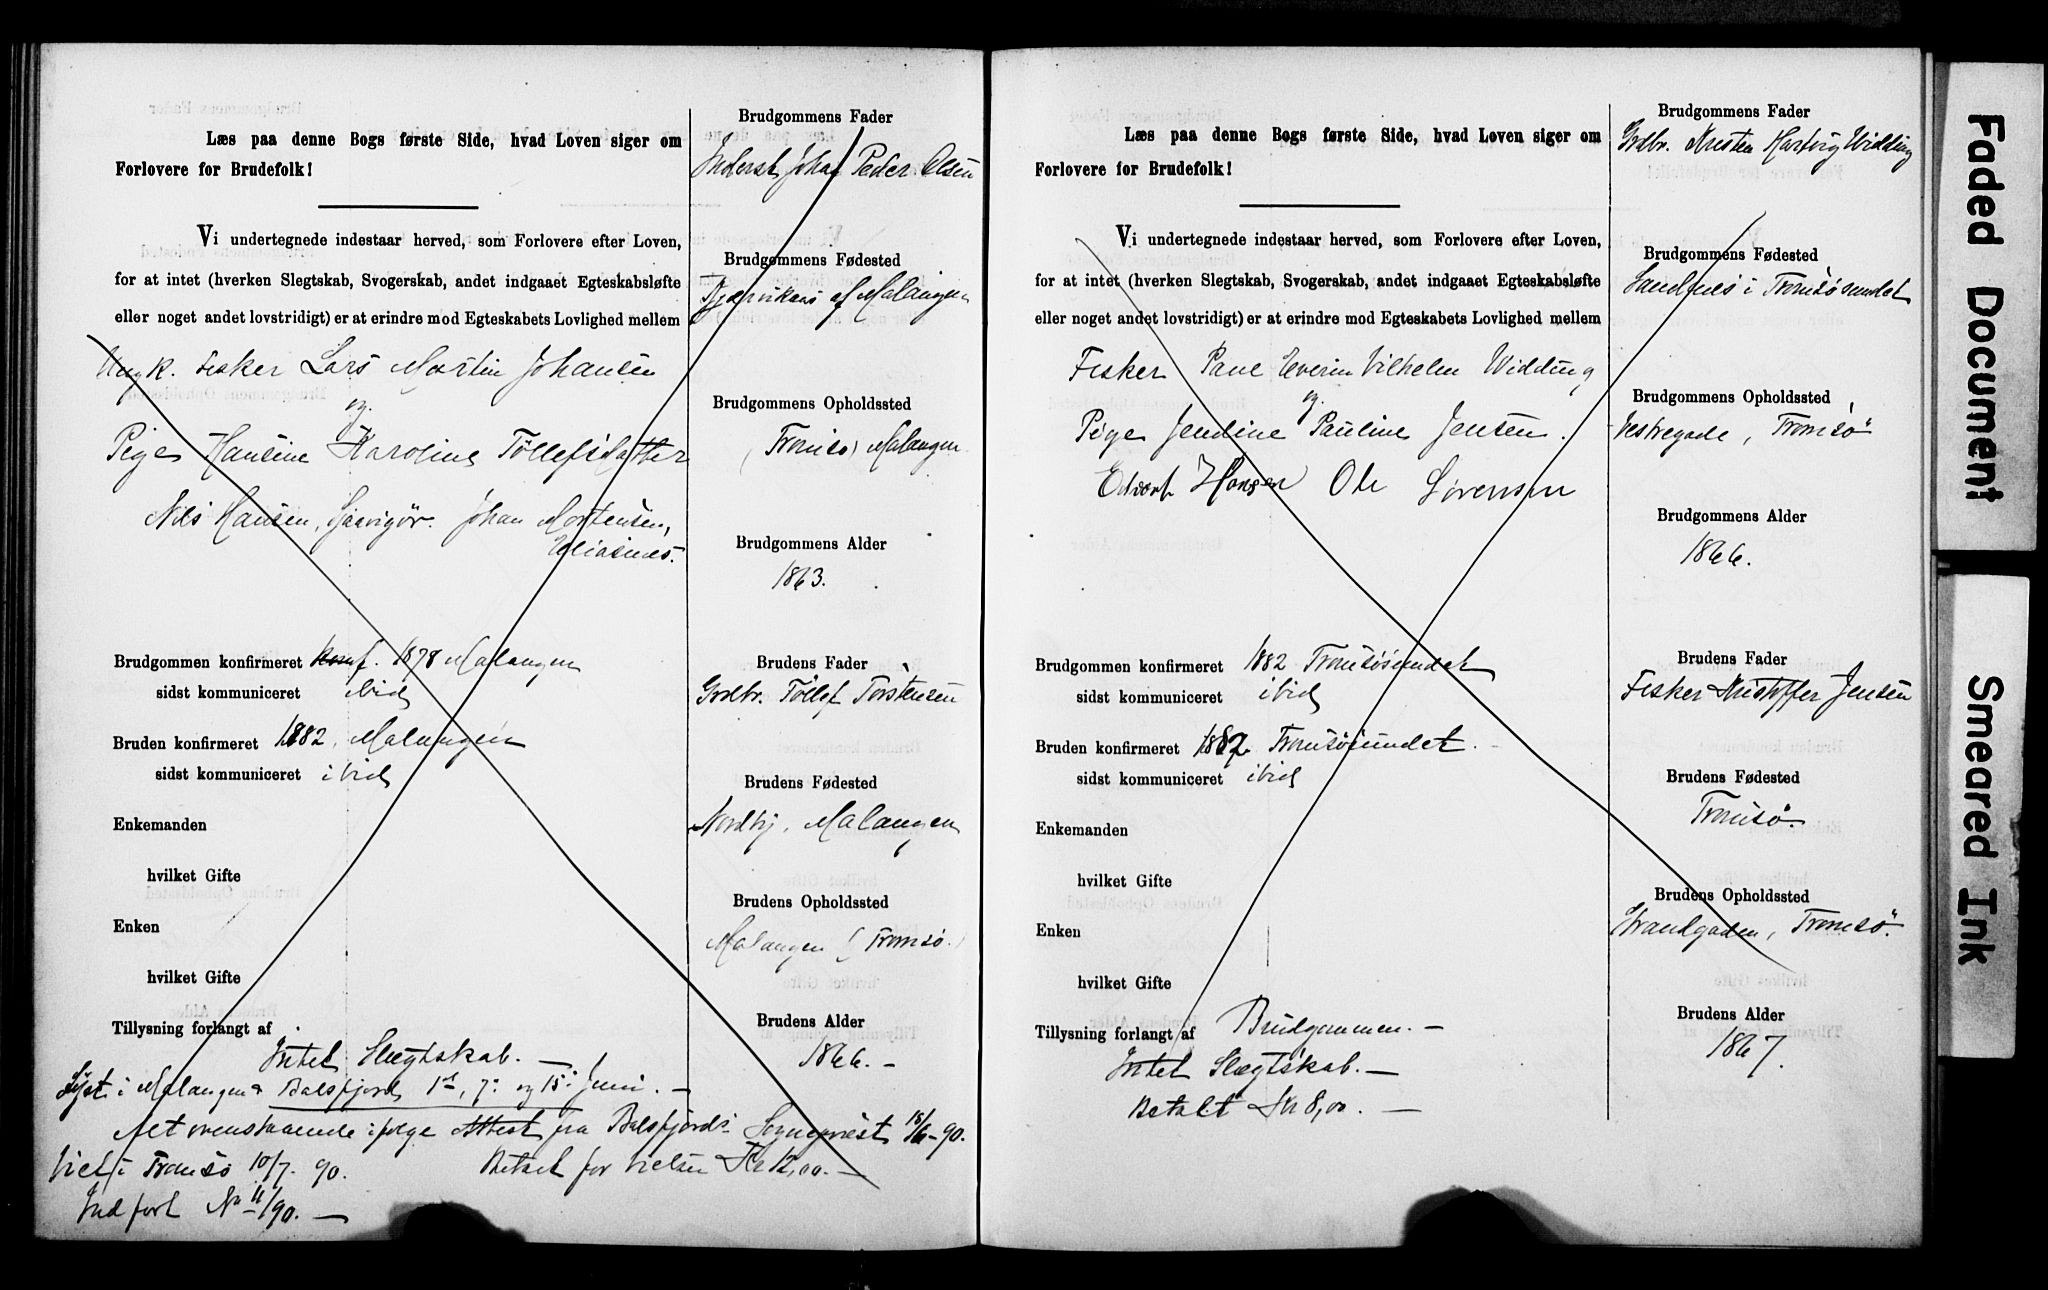 Læs paa denne Bogs første Side, hvad Loven siger om
Forlovere for Brudefolk!
Vi undertegnede indestaar herved, som Forlovere efter Loven,
for at intet (hverken Slegtskab, Svogerskab, andet indgaaet Egteskabsløfte
eller noget andet lovstridigt) er at erindre mod Egteskabets Lovlighed mellem
Ungk. Fisker Lars Martin Johansen
og
Pige Hansine Karoline Tollefsdatter
Nils Hansen, Johan Mortensen,
Brudgommen konfirmeret konf. 1878 Malangen
sidst kommuniceret ibid
Bruden konfirmeret 1882, Malangen
sidst kommuniceret ibid
Enkemanden
hvilket Gifte
Enken
hvilket Gifte
Tillysning forlangt af
Intet Slægtskab. —
Lyst i Malangen & Balsfjord 1st, 7: og 15: Juni. —
Alt ovenstaaende ifølge Attest fra Balsfjords Sognepræst 18/6-90.
Viet i Tromsø 10/7. 90. Betalt for Vielsen Kr 12,00. —
Indført No 11/90. —
Brudgommens Fader
Inderst Johan Peder Olsen
Brudgommens Fødested
af Malangen
Brudgommens Opholdssted
(Tromsø) Malangen
Brudgommens Alder
1863.
Brudens Fader
Grdbr. Tollef Torstensen
Brudens Fødested
Nordby, Malangen
Brudens Opholdssted
Malangen (Tromsø.)
Brudens Alder
1866. —
Læs paa denne Bogs første Side, hvad Loven siger om
Forlovere for Brudefolk!
Vi undertegnede indestaar herved, som Forlovere efter Loven,
for at intet (hverken Slegtskab, Svogerskab, andet indgaaet Egteskabsløfte
eller noget andet lovstridigt) er at erindre mod Egteskabets Lovlighed mellem
Fisker Paul Everin Vilhelm Widding
og
Pige Jendine Pauline Jensen.
Edvart Hansen Ole Sørensen
Brudgommen konfirmeret 1882 Tromsøsundet
sidst kommuniceret ibid
Bruden konfirmeret 1882 Tromsøsundet.
sidst kommuniceret ibid
Enkemanden
hvilket Gifte
Enken
hvilket Gifte
Tillysning forlangt af Brudgommen. —
Intet Slægtskab. —
Betalt Kr 8,00. —
Brudgommens Fader
Grdbr. Kristen Hartvig Widding
Brudgommens Fødested
Sandnes i Tromsøsundet
Brudgommens Opholdssted
Vestregade, Tromsø
Brudgommens Alder
1866.
Brudens Fader
Fisker Kristoffer Jensen
Brudens Fødested
Tromsø.
Brudens Opholdssted
Strandgaden, Tromsø.
Brudens Alder
1867.
Faded Document
Smeared Ink